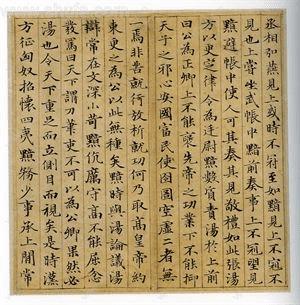 丞相弘燕見上或時不冠至如黯見上不冠不
見也上嘗坐武帳中黯前奏事上不冠望見
黯避帳中使人可其奏其見敬禮如此張湯
方以更定律令為廷尉黯數質責湯於上前
曰公為正卿上不能褒先帝之功業下不能抑
天下之邪心安國富民使囹圄空虛二者無
一焉非苦就行放析就功何乃取高皇帝約
束更之為公以此無種矣黯時與湯論議湯
辯常在文深小苛黯伉厲守高不能屈忿
發罵曰天下謂刀筆吏不可以為公卿果然必
湯也令天下重足而立側目而視矣是時漢
方征匈奴招懷四夷黯務少事承上間常